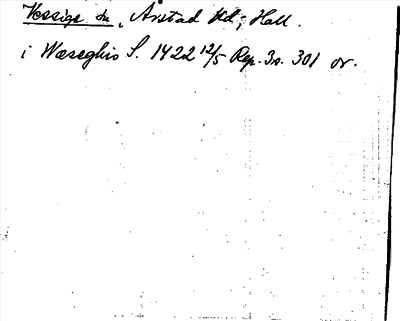 Vessige sn, Årstad hd; Hall.
i Wæseghio S. 1422 12/5 Rep. 3s. 301 or.